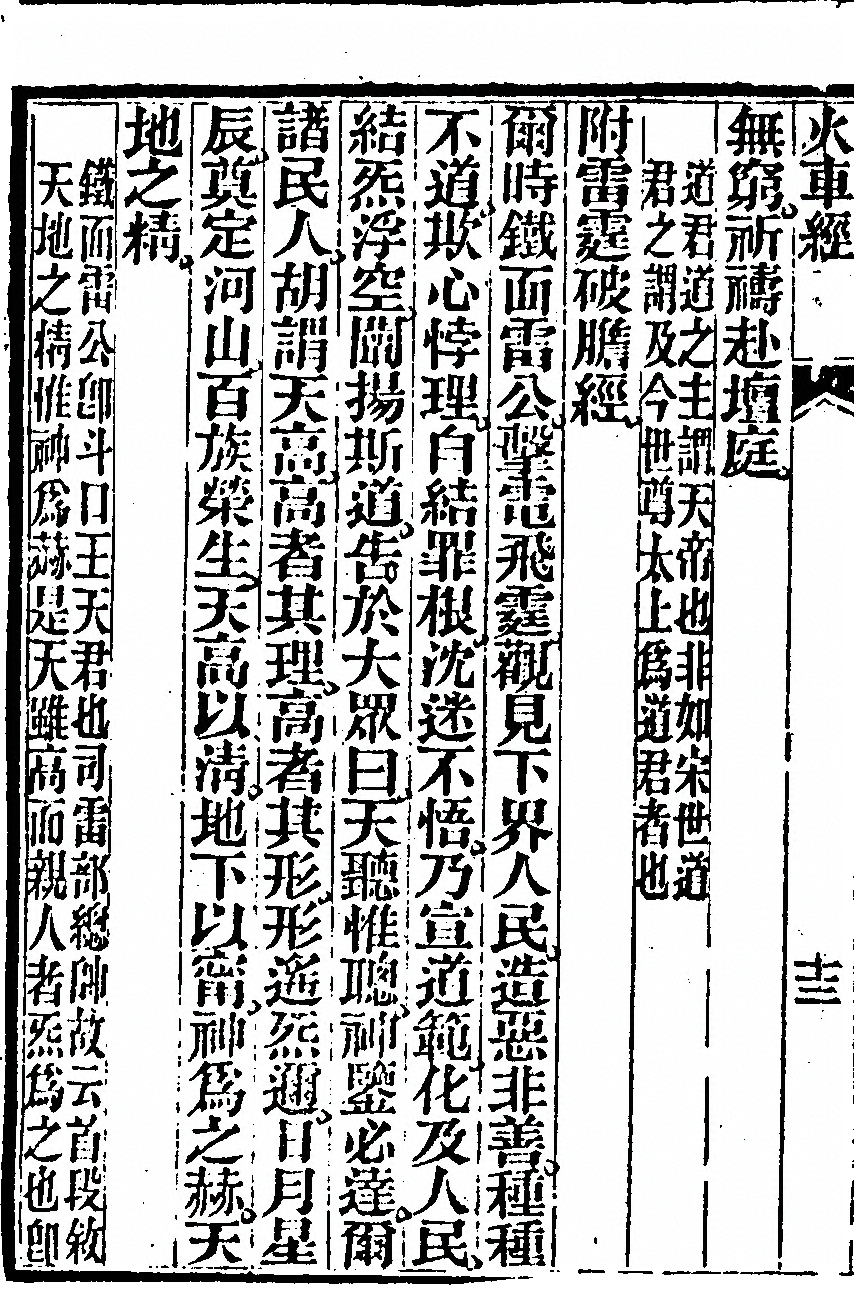 火車經
十三
無窮。祈禱赴壇庭。
道君道之主謂天帝也非如宋世道
君之謂及今世尊太上為道君者也
附雷霆破膽經。
爾時鐵面雷公。擊電飛霆。觀見下界人民。造惡非善。種種
不道。欺心悖理。自結罪根。沈迷不悟。乃宣道範。化及人民。
結炁浮空。闡揚斯道。告於大眾曰。天聽惟聰。神鑒必達。爾
諸民人。胡謂天高。高者其理。高者其形。形遙炁邇。日月星
辰。奠定河山。百族榮生。天高以清。地下以甯。神爲之赫。天
地之精。
鐵面雷公卽斗口王天君也司雷部總帥故云首段敘
天地之精惟神爲赫是天雖高而親人者炁爲之也卽